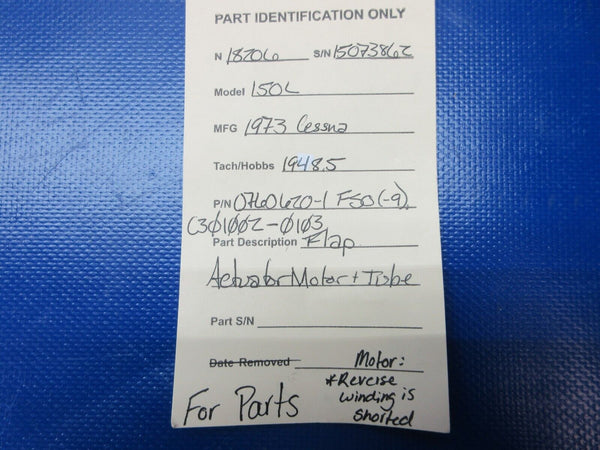 PART IDENTIFICATION ONLY
N 18206 S/N 15073862
Model 150L
MFG 1973 Cessna
Tach/Hobbs 1948.5
P/N 0760620-1 FSO(-9)
C301002-0103
Part Description Flap
Actuator Motor + Tube
Part S/N
Date Removed Motor:
*Reverse
winding is
shorted
For Parts